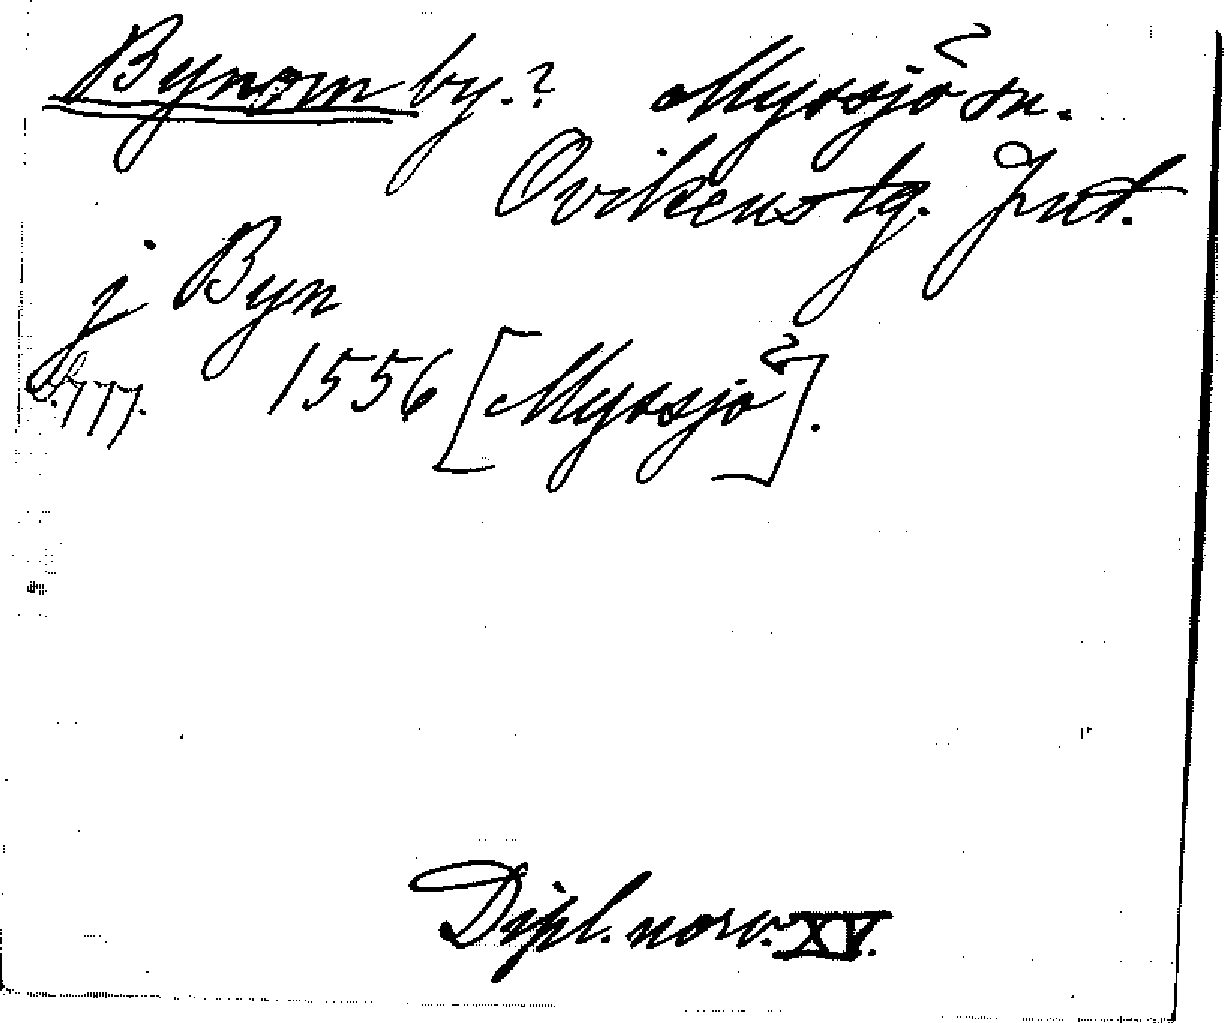 Bynom by.? Myssjö sn.
Ovikens tg. Jmt.
j Byn
s. 777. 1556 [Myssjö].
Dipl. norv. XV.